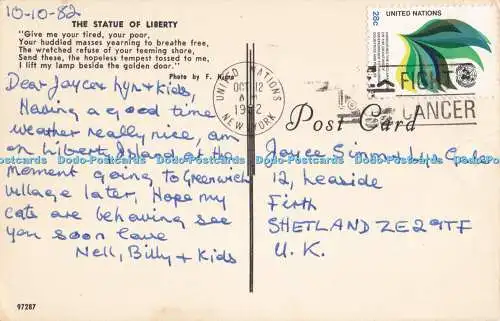 10-10-82
THE STATUE OF LIBERTY
"Give me your tired, your poor,
Your huddled masses yearning to breathe free,
The wretched refuse of your teeming shore,
Send these, the hopeless tempest tossed to me,
I lift my lamp beside the golden door."
Photo by F.
Dear Joyce, Lyn & kids,
Having a good time
weather really nice, am
on Liberty Island at the
moment going to Greenwich
village later, Hope my
cats are behaving see
you soon love
Nell, Billy & Kids
97287
UNITED NATIONS
OCT 12
AM
1982
NEW YORK
UNITED NATIONS
28c
FIGHT
CANCER
Post Card
Joyce
12, Leaside
Firth
SHETLAND ZE2 9TF
U.K.
Dodo-Postcards Dodo-Postcards Dodo-Postcards Dodo-Postcards